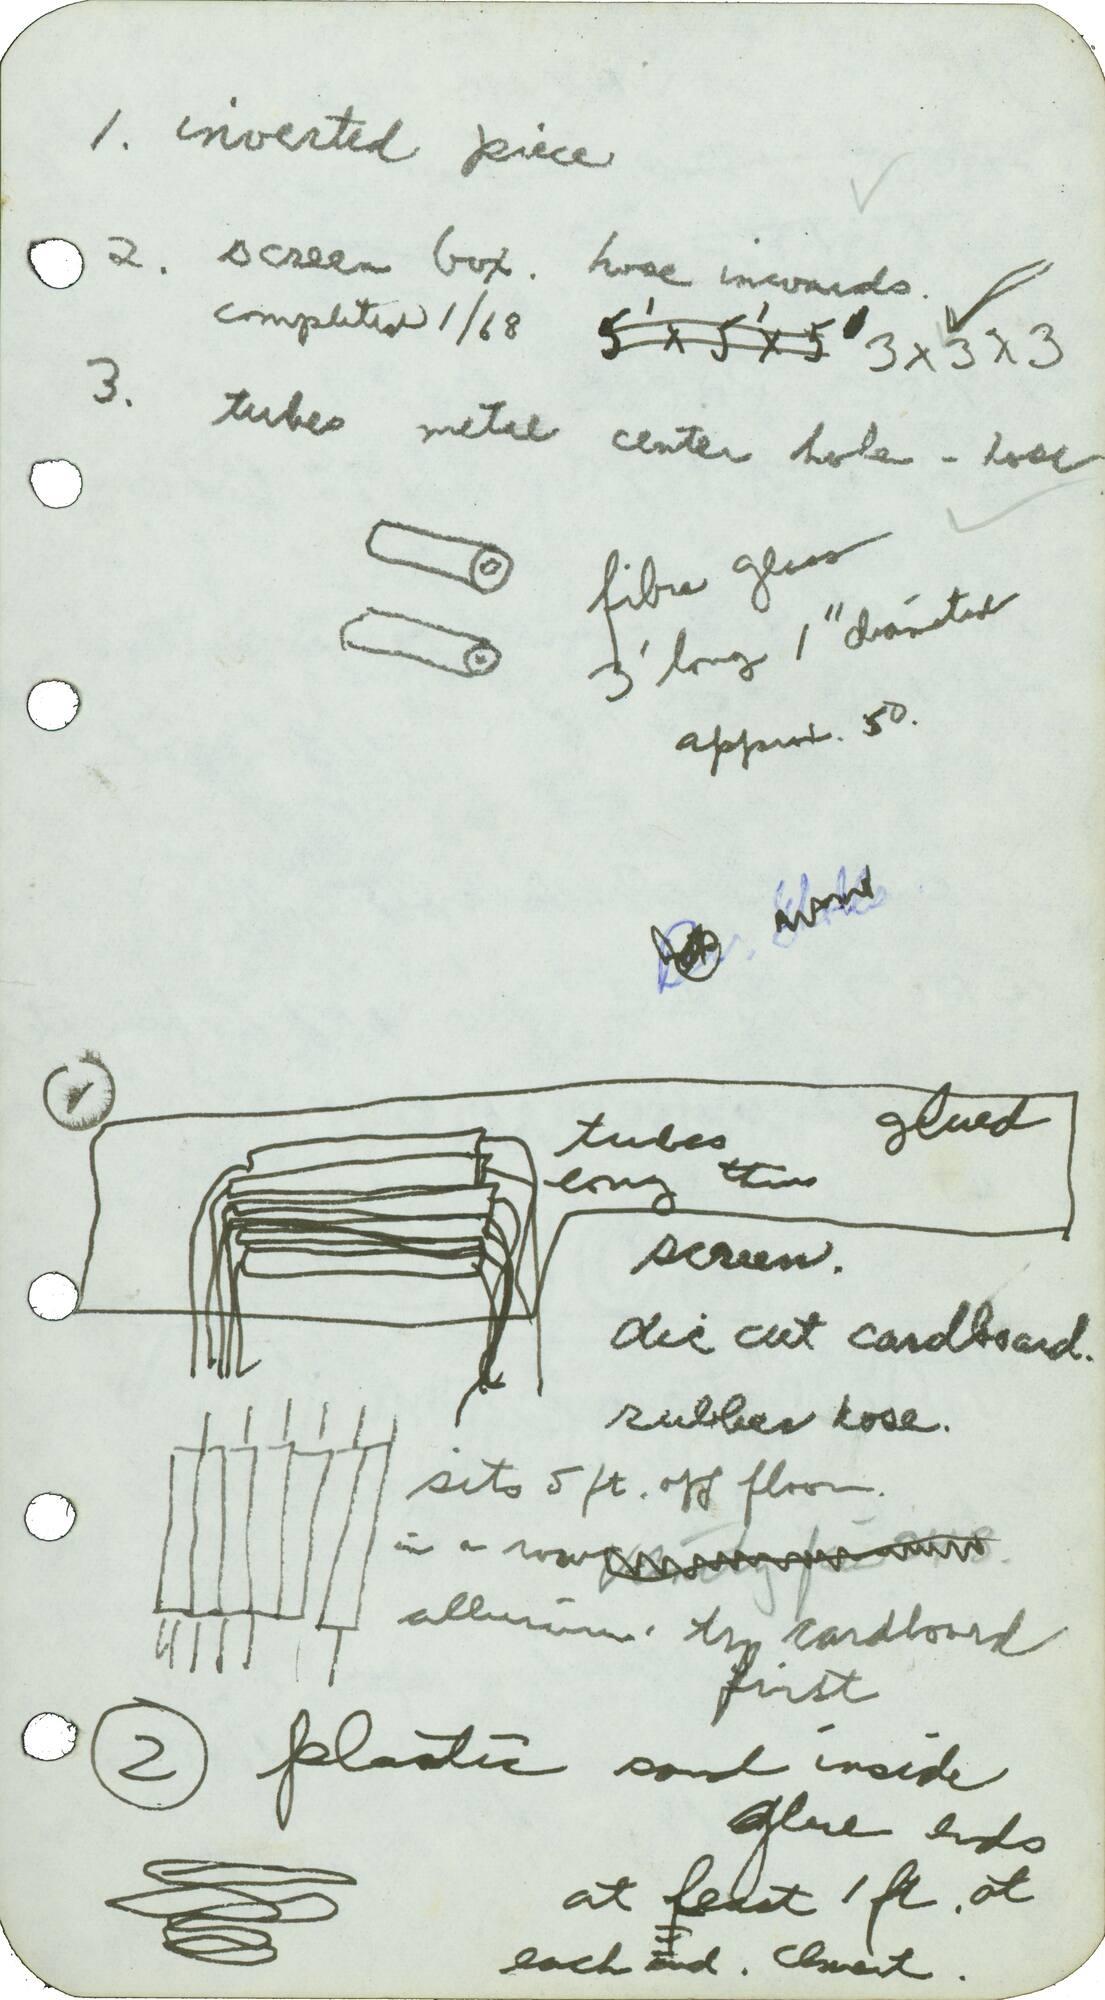 1. inverted piece
2. screen box. hose inwards.
completed 1/68 5' x 5' x 5' 3 x 3 x 3
3. tubes metal center hole - hose
fibre glass
3' long 1" diameter
approx. 50.
Dr.
1
tubes glued
long thin
screen.
die cut cardboard.
rubber hose.
sits 5 ft. off floor.
in a row
alluminum. try cardboard
first
2 plastic sand inside
glue ends
at least 1 ft. at
each end. Cement.